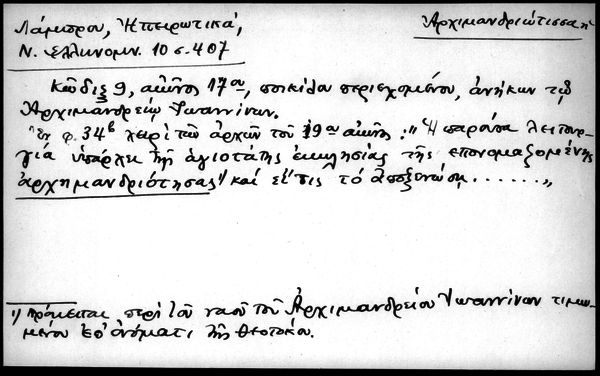 Λάμπρου, Ἠπειρωτικά,
Ἀρχιμανδριώτισσα ἡ
Ν. Ἑλληνομν. 10 σ. 407
Κῶδιξ 9, αἰῶνος 17ου, ποικίλου περιεχομένου, ἀνήκων τῷ
Ἀρχιμανδρείῳ Ἰωαννίνων.
Ἐν φ. 34β χειρὶ τῶν ἀρχῶν τοῦ 19ου αἰῶνος: "Ἡ παροῦσα λειτουρ-
γία ὑπάρχει τῆς ἁγιοτάτης ἐκκλησίας τῆς ἐπονομαζομένης
ἀρχημανδριότησας 1) καί εἴ τις τό ἀποξενώσῃ ......"
1) Πρόκειται περὶ τοῦ ναοῦ τοῦ Ἀρχιμανδρείου Ἰωαννίνων τιμω-
μένου ἐπ' ὀνόματι τῆς Θεοτόκου.